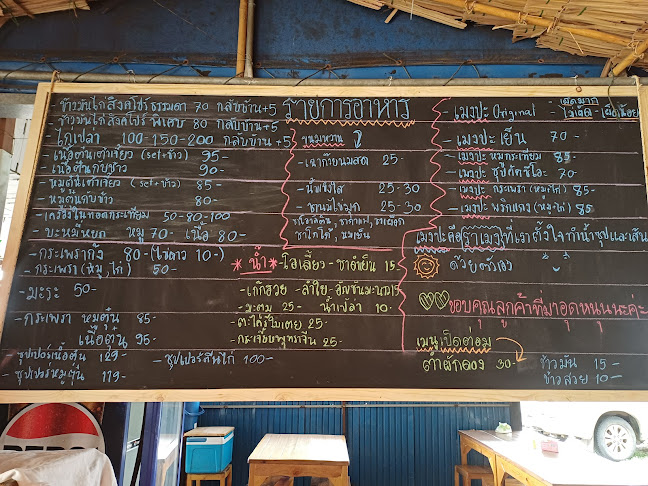 รายการอาหาร
ข้าวมันไก่สิงคโปร์ ธรรมดา 70 กลับบ้าน+5
ข้าวมันไก่สิงคโปร์ พิเศษ 80 กลับบ้าน+5
ไก่เปล่า 100-150-200 กลับบ้าน+5
เนื้อตุ๋นเต้าเจี้ยว (set+ข้าว) 95-
เนื้อตุ๋นกับข้าว 90-
หมูตุ๋นเต้าเจี้ยว (set+ข้าว) 85-
หมูตุ๋นกับข้าว 80-
เครื่องในทอดกระเทียม 50-80-100
บะหมี่หยก หมู 70- เนื้อ 80-
-กระเพรากุ้ง 80-(ไข่ดาว 10-)
-กระเพรา (หมู,ไก่) 50-
-มะระ 50-
-กระเพรา หมูตุ๋น 85-
เนื้อตุ๋น 95-
ซุปเปอร์เนื้อตุ๋น 129-
-ซุปเปอร์หมูตุ๋น 119-
-ซุปเปอร์ตีนไก่ 100-
ขนมหวาน
-เฉาก๊วยนมสด 25-
-น้ำแข็งใส 25-30
-ชานมไข่มุก 25-30
ชาโกโก้, นมเย็น
*น้ำ* -โอเลี้ยว-ชาดำเย็น 15
-เก๊กฮวย -ลำไย-อัญชันมะนาว 15
-มะตูม 25 - น้ำเปล่า 10-
-ตะไคร้ใบเตย 25-
-กระเจี๊ยบพุทราจีน 25-
-เมงปะ Original -
-เมงปะ เย็น 70-
-เมงปะ หมูกระเทียม 85-
-เมงปะ ซุปคัทซึโอะ 70-
-เมงปะ กระเพรา (หมู+ไก่) 85-
-เมงปะ พริกแกง (หมู+ไก่) 85-
เมงปะคือราเมงที่เราตั้งใจทำน้ำซุปและเส้น
ด้วยตัวเอง
ขอบคุณลูกค้าที่มาอุดหนุนนะค่ะ
เมนูเปิดต่อม
ตำผักดอง 30-
ข้าวมัน 15-
ข้าวสวย 10-